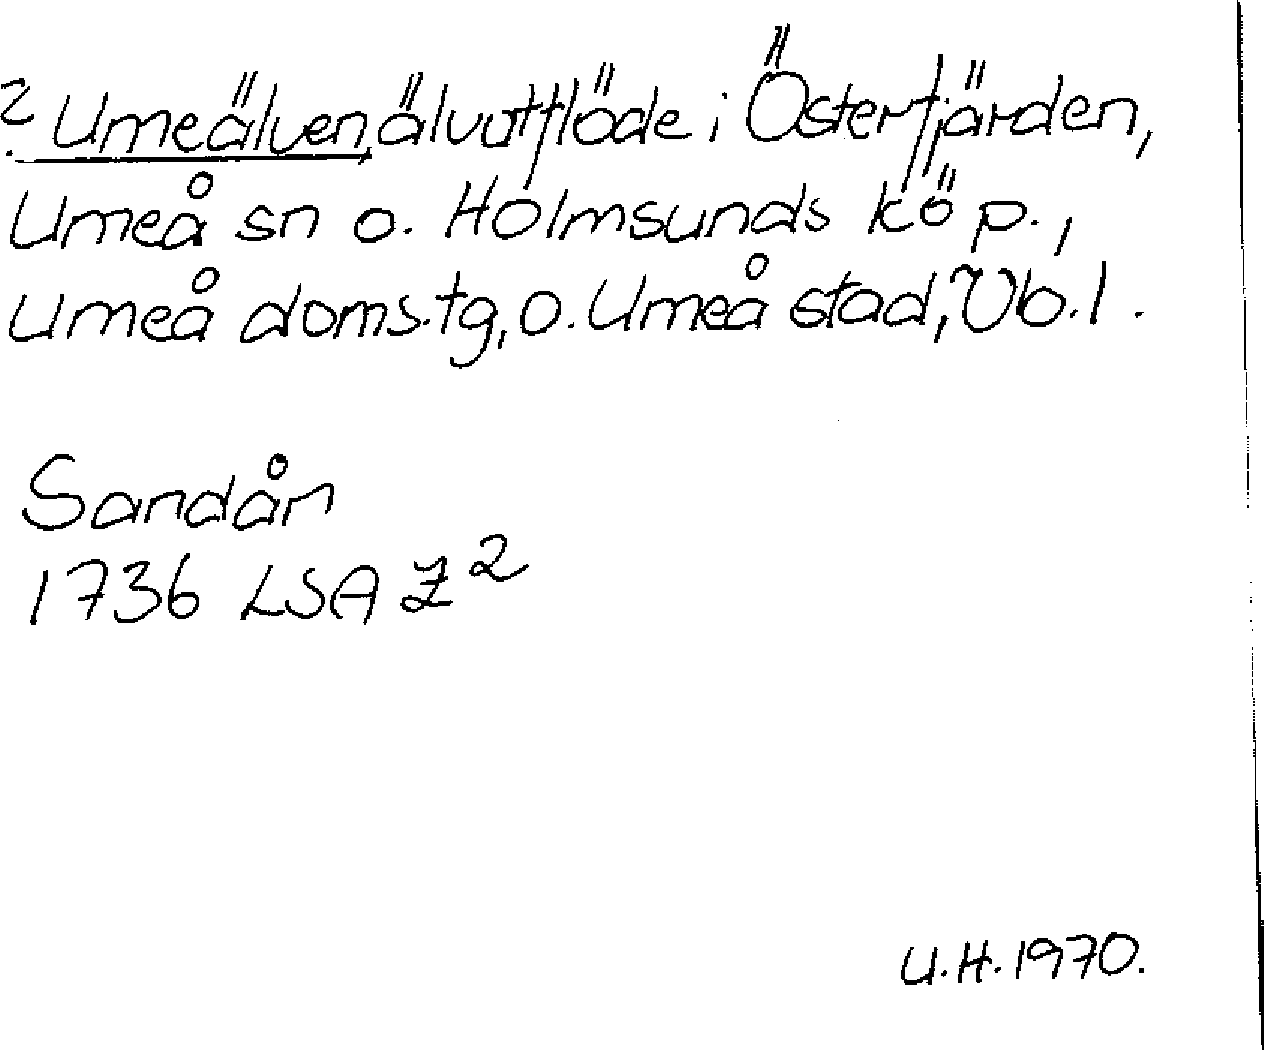 ? Umeälven, älvutflöde i Österfjärden,
Umeå sn o. Holmsunds köp.,
Umeå doms.tg, o. Umeå stad, Vb. l.
Sandån
1736 LSA Z²
U.H. 1970.